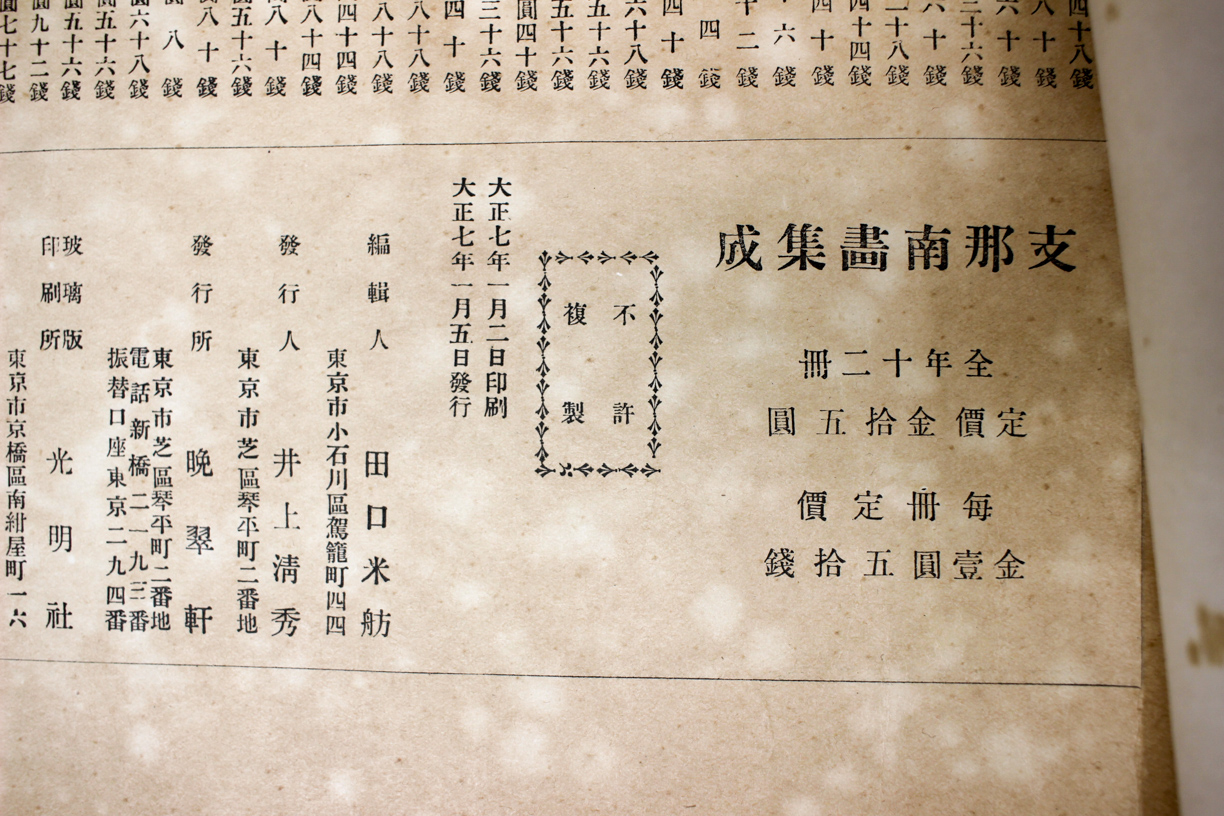 四十八錢
八十錢
六十錢
三十六錢
六十錢
二十八錢
四十四錢
四十錢
六錢
十二錢
四錢
四十錢
六十八錢
五十六錢
五十六錢
圓四十錢
三十六錢
四十錢
八十八錢
八十八錢
四十四錢
八十四錢
八十錢
圓五十六錢
八十錢
八錢
圓六十八錢
圓五十六錢
圓五十六錢
圓九十二錢
圓七十七錢
支那南畵集成
全年十二冊
定價金拾五圓
每冊定價
金壹圓五拾錢
不許
複製
大正七年一月二日印刷
大正七年一月五日發行
編輯人 田口米舫
東京市小石川區駕籠町四四
發行人 井上淸秀
東京市芝區琴平町二番地
發行所 晚翠軒
東京市芝區琴平町二番地
電話新橋二一九三番
振替口座東京二二九四番
玻璃版
印刷所 光明社
東京市京橋區南紺屋町一六